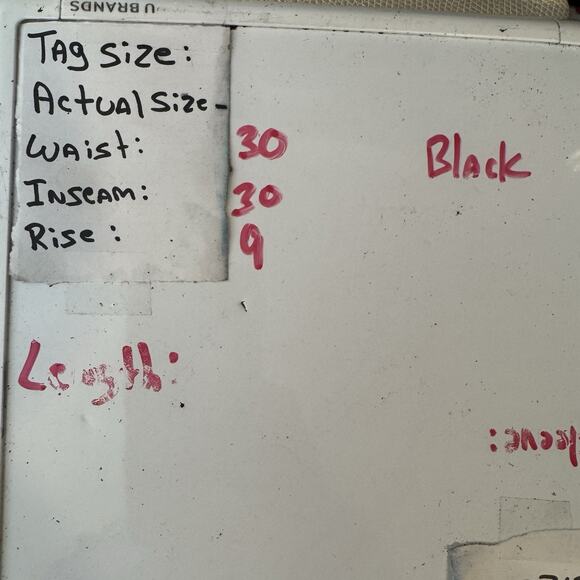 U BRANDS
Tag Size:
Actual Size-
Waist: 30
Black
Inseam: 30
Rise: 9
Length: